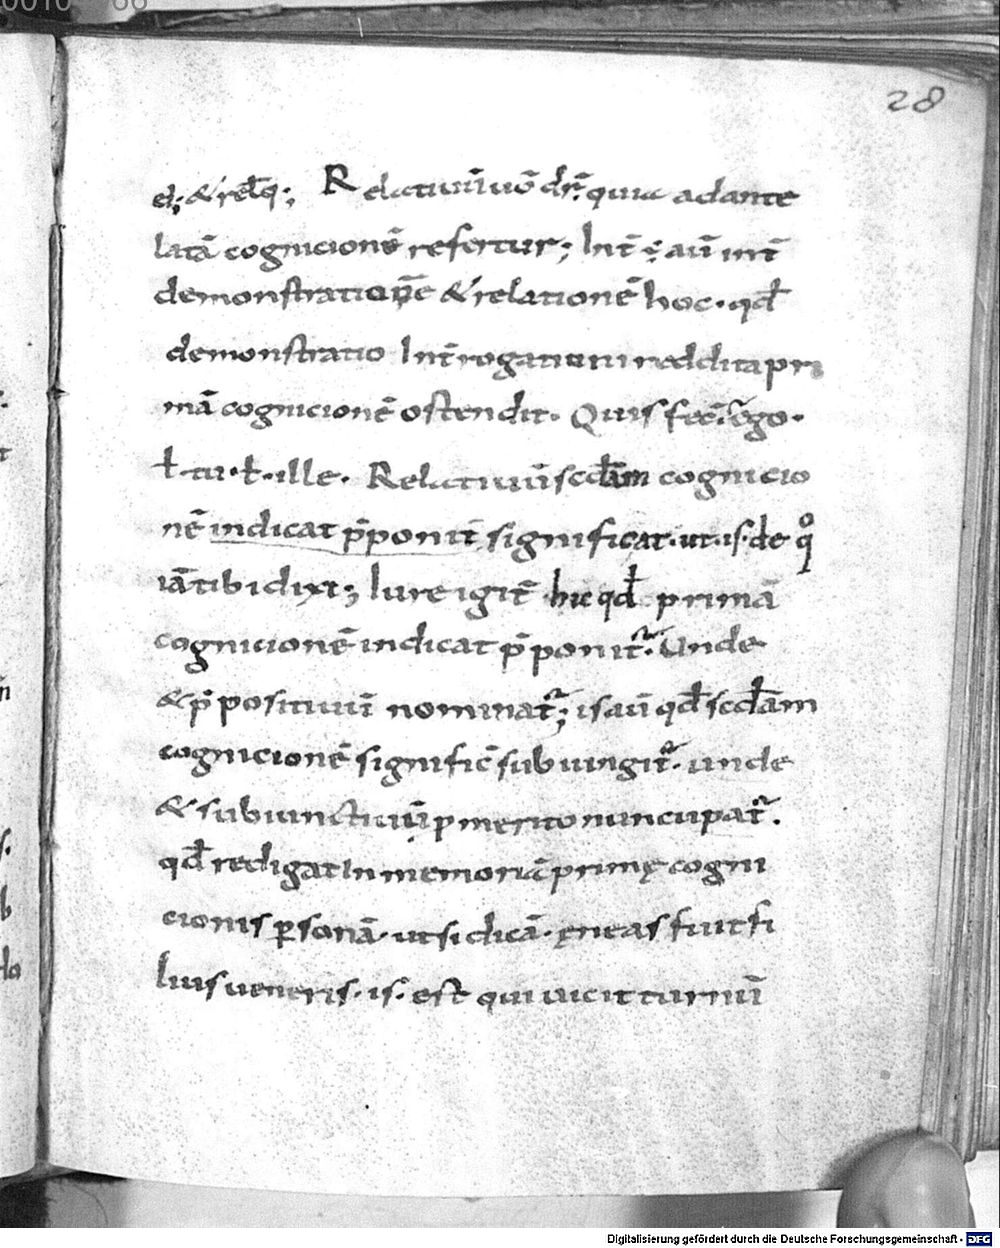 28
el; & relq̄; Relatiuū uō dr̄ quia adante
latā cognicionē refertur; Int̄ ę aū int̄
demonstrationē & relationē hoc· qđ
demonstratio Int̄rogationi reddita pri
mā cognicionē ostendit· Quis fec̄· ego·
ł· tu· ł· ille· Relatiuū scđam cognicio
nē indicat p̄ponit̄ significat· ut· is· de qͦ
iā tibi dixi; Iure igit̄ hic qđ primā
cognicionē indicat p̄ponit̄· Unde
& p̄positiuū nominat̄; is aū qđ scđam
cognicionē signific̄ subiungit̄· unde
& subiunctiuū p merito nuncupat̄·
qđ redigat In memoriā primę cogni
cionis p̱sonā· ut si dicā· ęneas fuit fi
lius ueneris· is· est qui uicit turnū
Digitalisierung gefördert durch die Deutsche Forschungsgemeinschaft - DFG